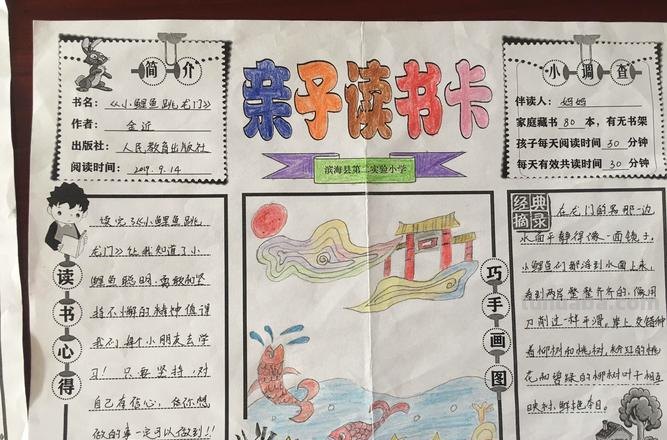 简介
书名：《小鲤鱼跳龙门》
作者：金近
出版社：人民教育出版社
阅读时间：2019.9.14
亲子读书卡
滨海县第二实验小学
小调查
伴读人：妈妈
家庭藏书80本，有无书架
孩子每天阅读时间30分钟
每天有效共读时间30分钟
读书心得
读完了《小鲤鱼跳
龙门》让我知道了小
鲤鱼聪明、勇敢和坚
持不懈的精神值得
我们每个小朋友去学
习！只要坚持，对
自己有信心，任你想
做的事一定可以做到！！
巧手画图
经典摘录
在龙门的另那一边
水面平静得像一面镜子，
小鲤鱼们都浮到水面上来，
看到两岸整整齐齐的，像用
刀削过一样平滑。岸上交错种
着柳树和桃树，粉红的桃
花和碧绿的柳树叶子相互
映衬，鲜艳夺目。